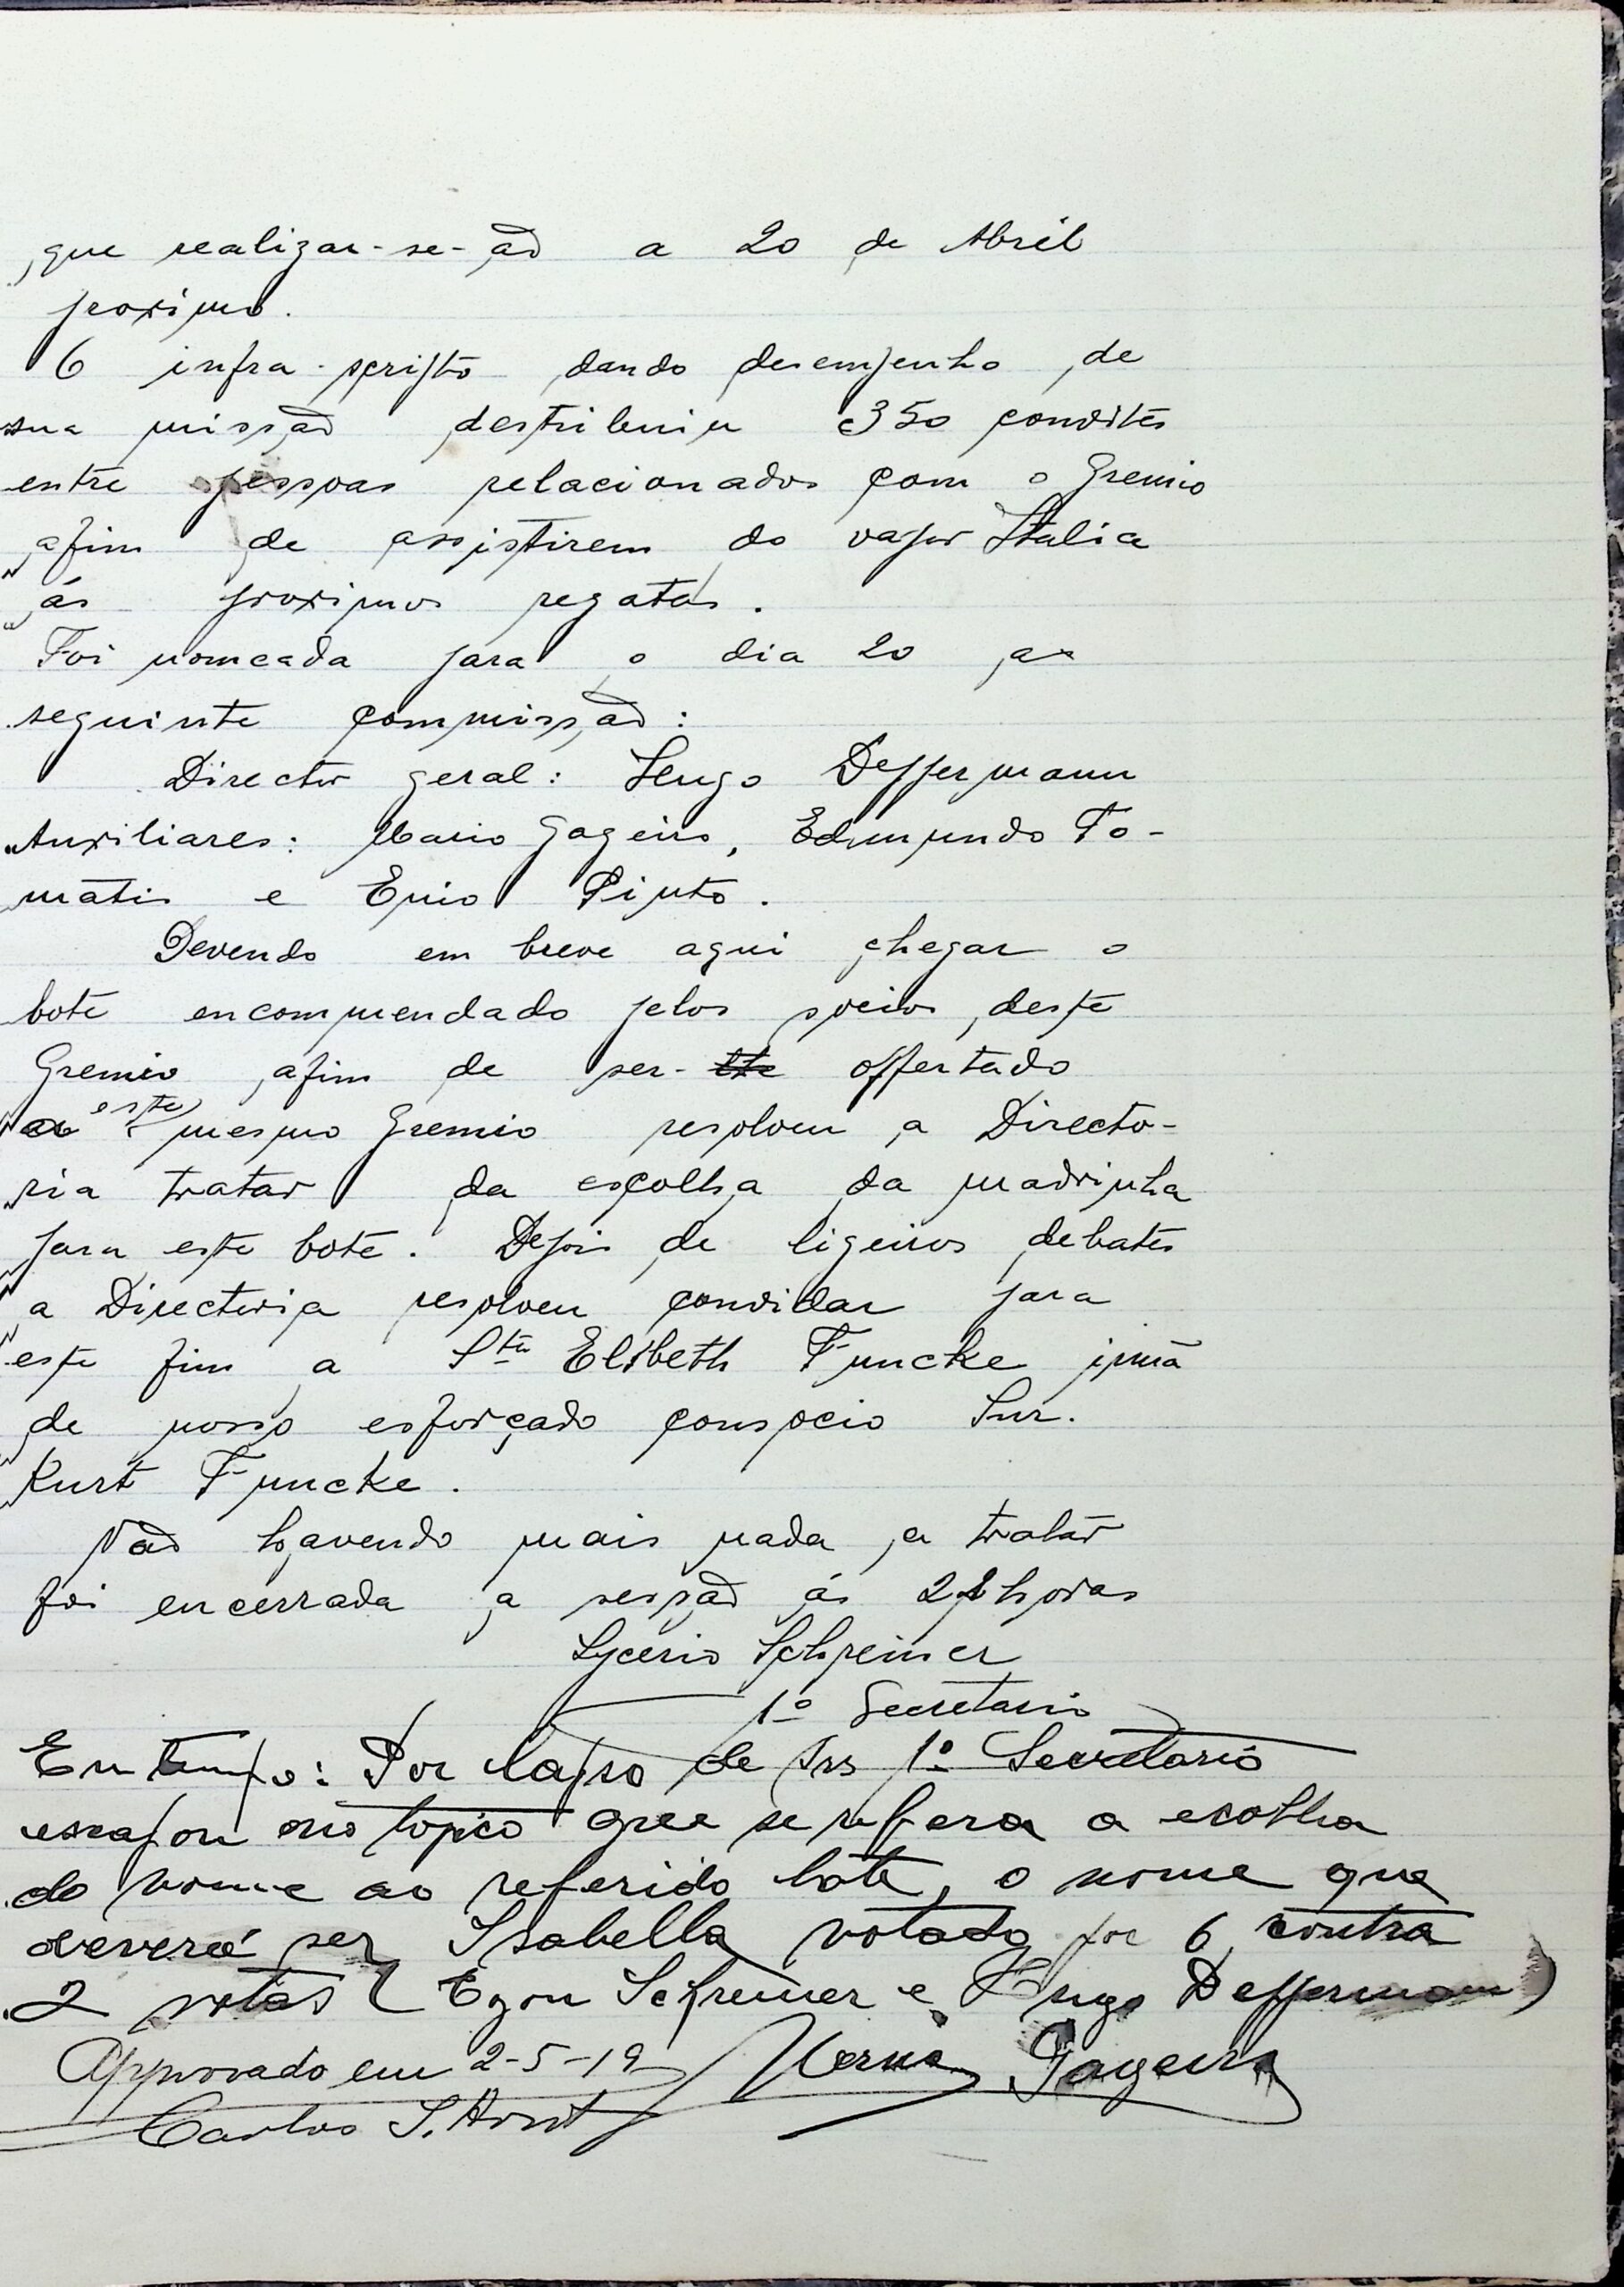 que realizar-se-ão a 20 de Abril
proximo.
O infra-scripto dando desempenho de
sua missão destribuiu 350 convites
entre pessoas relacionados com o Gremio
afim de assistirem do vapor Italia
ás proximas regatas.
Foi nomeada para o dia 20 a
seguinte commissão:
Director geral: Hugo Deppermann
Auxiliares: Mario Gageiro, Edmundo To-
matis e Enio Pinto.
Devendo em breve aqui chegar o
bote encommendado pelos socios deste
Gremio afim de ser- offertado
a este mesmo Gremio resolveu a Directo-
ria tratar da escolha da madrinha
para este bote. Depois de ligeiros debates
a Directoria resolveu convidar para
este fim a Sta Elsbeth Funcke irmã
de nosso esforçado consocio Snr.
Kurt Funcke.
Não havendo mais nada a tratar
foi encerrada a sessão ás 22 horas
Lycerio Schreiner
1º Secretario
Em tempo: Por lapso de 1º Secretario
escapou no topico que se refera a escolha
do nome ao referido bote, o nome que
deverá ser Isabella votado por 6 contra
2 votos (Egon Schreiner e Hugo Deppermann)
Approvado em 2-5-19 Gageiro
Carlos S. Arnt